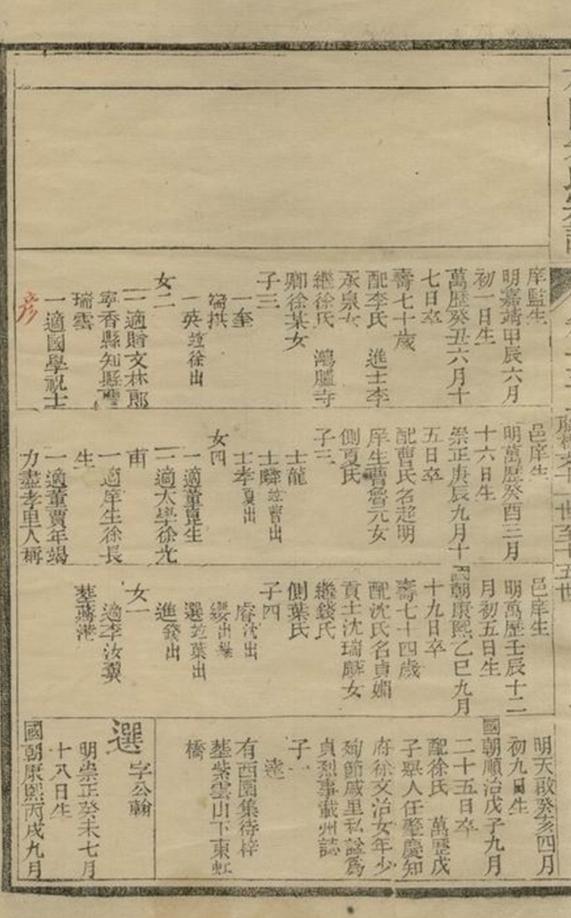 庠監生
明嘉靖甲辰六月
初一日生
萬歷癸丑六月十
七日卒
壽七十歲
配李氏 進士李
汞泉女
繼徐氏 鴻臚寺
卿徐某女
子三
一奎
一英竝徐出
女二
一適贈文林郎
寧香縣知縣
瑞雲
一適國學祝士
彥
邑庠生
明萬歷癸酉三月
十六日生
崇正庚辰九月十
五日卒
配曹氏名起明
庠生曹魯元女
側夏氏
子三
士龍
士驎竝曹出
士孝夏出
女四
一適董貞生
一適大學徐允
甫
一適庠生徐長
生
一適董賈年竭
力盡孝里人稱
邑庠生
明萬歷壬辰十二
月初五日生
國朝康熙乙巳九月
十九日卒
壽七十四歲
配沈氏名貞嫺
貢士沈瑞麟女
繼錢氏
側葉氏
子四
睿沈出
纓出繼
選竝葉出
進錢出
女一
適李汝翼
葬蔣港
明天啟癸亥四月
初九日生
國朝順治戊子九月
二十五日卒
配徐氏 萬歷戊
子舉人任肇慶知
府徐文治女年少
殉節戚里私諡爲
貞烈事載州誌
子一
逵
有西園集待梓
葬紫雲山下東虹
橋
選 字公翰
明崇正癸未七月
十八日生
國朝康熙丙戌九月